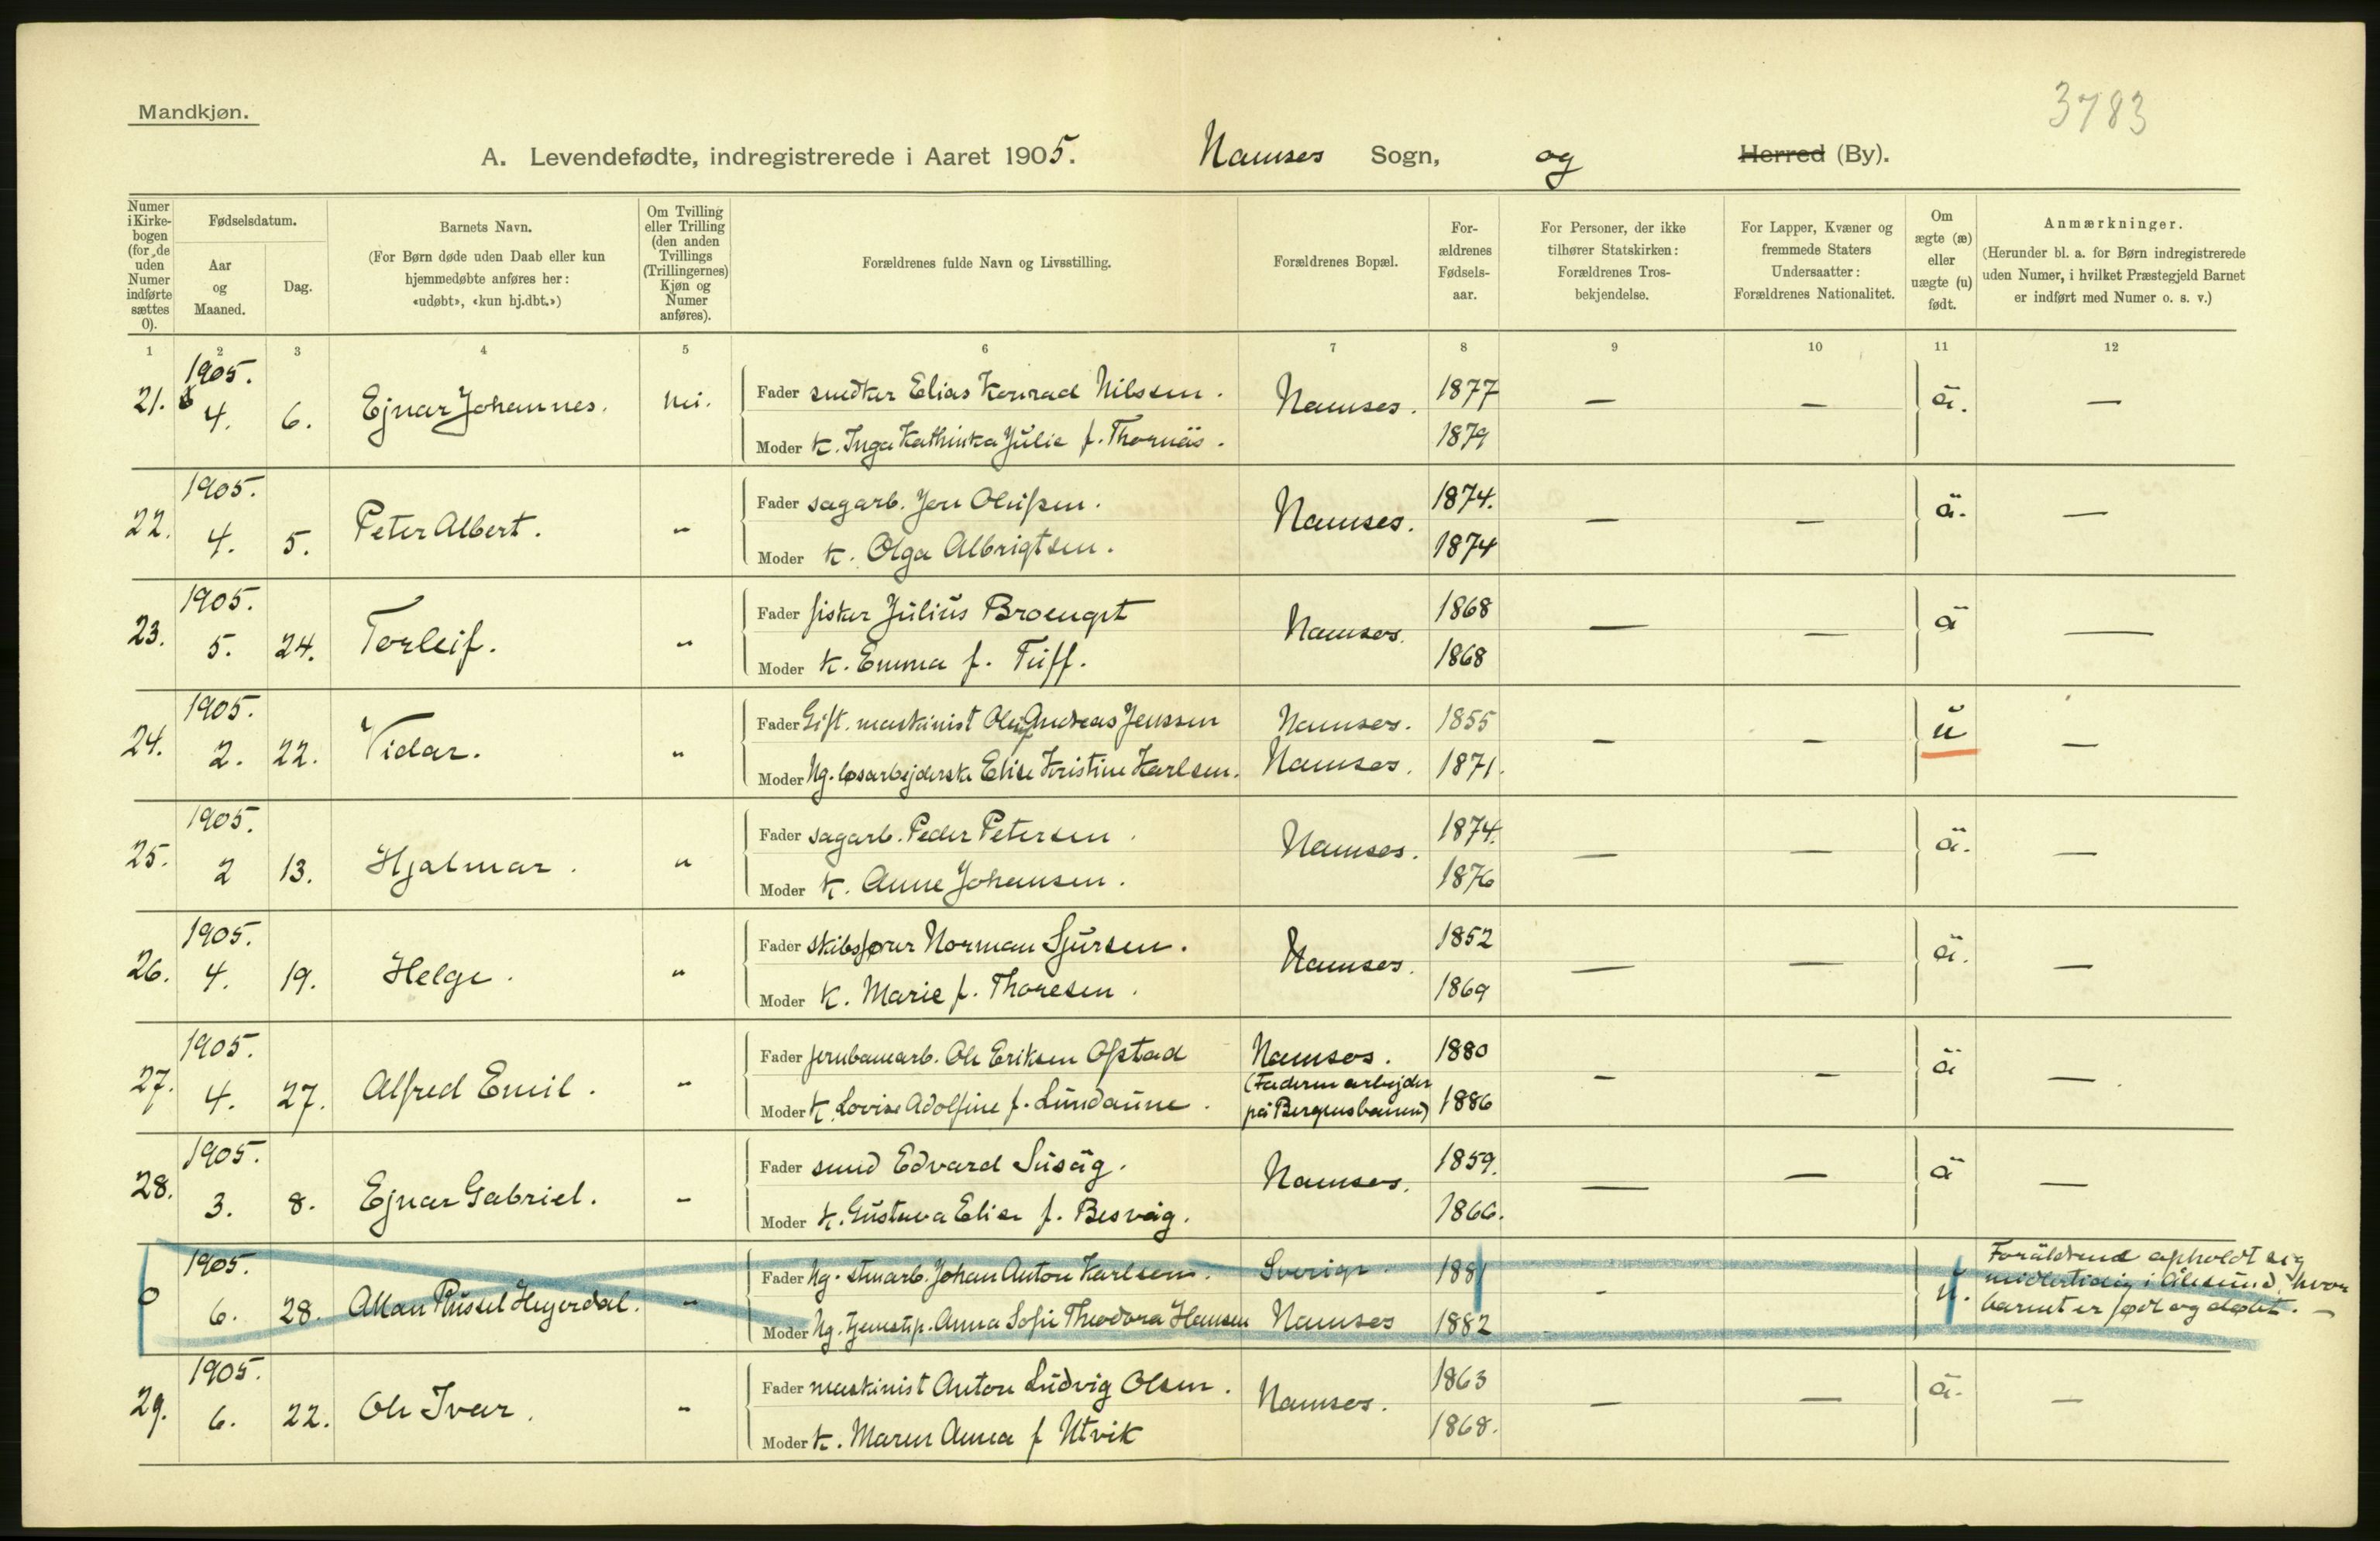 Mandkjøn.
3783
A. Levendefødte, indregistrerede i Aaret 1905. Namsos Sogn, og Herred (By).
Numer i Kirkebogen (for de uden Numer indførte sættes 0).
Fødselsdatum.
Aar og Maaned.
Dag.
Barnets Navn.
(For Børn døde uden Daab eller kun hjemmedøbte anføres her: «udøbt», «kun hj.dbt.»)
Om Tvilling eller Trilling (den anden Tvillings (Trillingernes) Kjøn og Numer anføres).
Forældrenes fulde Navn og Livsstilling.
Forældrenes Bopæl.
Forældrenes Fødselsaar.
For Personer, der ikke tilhører Statskirken: Forældrenes Trosbekjendelse.
For Lapper, Kvæner og fremmede Staters Undersaatter: Forældrenes Nationalitet.
Om ægte (æ) eller uægte (u) født.
Anmærkninger.
(Herunder bl. a. for Børn indregistrerede uden Numer, i hvilket Præstegjeld Barnet er indført med Numer o. s. v.)
1 2 3 4 5 6 7 8 9 10 11 12
21. 1905. 4. 6. Ejnar Johannes. nei. Fader snedker Elias Konrad Nilssen. Namsos. 1877 — — ä. —
Moder k. Inga Kathinka Julie f. Thornäs. 1879
22. 1905. 4. 5. Peter Albert. " Fader sagarb. Jon Olufsen. Namsos. 1874. — — ä. —
Moder k. Olga Albrigtsen. 1874
23. 1905. 5. 24. Torleif. " Fader fisker Julius Broenget Namsos. 1868 — — ä —
Moder k. Emma f. Tuff. 1868
24. 1905. 2. 22. Vidar. " Fader Gift. maskinist Oluf Andreas Jenssen Namsos. 1855 — — u —
Moder Ug. løsarbejderske Elise Kristine Karlsen. Namsos. 1871.
25. 1905. 2 13. Hjalmar. " Fader sagarb. Peder Petersen. Namsos. 1874. — — ä. —
Moder k. Anne Johansen. 1876
26. 1905. 4. 19. Helge. " Fader skibsfører Norman Sjursen. Namsos. 1852 — — ä. —
Moder k. Marie f. Thoresen. 1869
27. 1905. 4. 27. Alfred Emil. " Fader jernbanearb. Ole Eriksen Ofstad Namsos. 1880 — — ä —
Moder k. Lovise Adolfine f. Lundaune. (Faderen arbejder på Bergensbanen) 1886
28. 1905. 3. 8. Ejnar Gabriel. " Fader smed Edvard Susäg. Namsos. 1859. — — ä —
Moder k. Gustava Elise f. Besvåg. 1866.
0 1905. 6. 28. Allan Russel Heyerdal. " Fader Ug. stuarb. Johan Anton Karlsen. Sverige. 1881 - u. Foräldrene opholdt sig
midlertidig i Ålesund, hvor
barnet er født og døbt. —
Moder Ug. tjenestp. Anna Sofie Theodora Hansen Namsos 1882
29. 1905. 6. 22. Ole Ivar. " Fader maskinist Anton Ludvig Olsen. Namsos. 1863 — — ä. —
Moder k. Maren Anna f Utvik 1868.